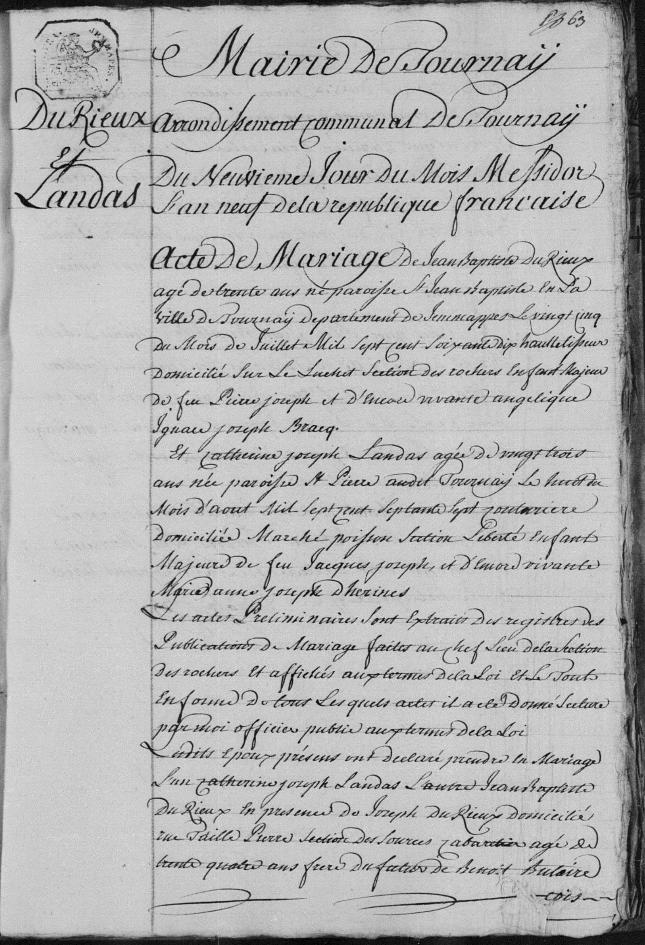 63
Mairie De Tournaÿ
Du Rieux
Et
Landas
Arrondissement communal De Tournaÿ
Du Neuvieme Jour Du Mois Messidor
L'an neuf de la republique francaise
Acte De Mariage de Jean Baptiste Du Rieux
agé de trente ans né paroisse St Jean Baptiste En La
ville de Tournaÿ departement de Jemmappes Le vingt cinq
du Mois de Juillet Mil Sept Cent Soixante dix hautelisseur
Domicilié Sur Le Luchet Section des rochers Enfant Majeur
de feu Pierre joseph et d'Encore vivante angelique
Ignace joseph Bracq.
Et Catherine joseph Landas agée De vingt trois
ans née paroisse St Pierre audit Tournaÿ Le huit du
Mois d'aout Mil Sept Cent Septante Sept couturiere
Domiciliée Marché poisson Section Liberté Enfant
Majeure de feu Jacques joseph, et d'Encore vivante
Marie anne joseph Dherines
Les actes Preliminaires Sont Extraits des registres des
Publications de Mariage faites au Chef Lieu de la Section
des rochers Et affichés aux termes de la Loi Et Le Tout
En forme de tous Les quels actes il a eté Donné Lecture
par moi officier public aux termes de la Loi
Lesdits Epoux présens ont declaré prendre En Mariage
L'un Catherine joseph Landas L'autre Jean Baptiste
Du Rieux En presence de Joseph Du Rieux Domicilié
rue Taille Pierre Section des Sources Cabaretier agé de
trente quatre ans frere du futur de Benoit
cois